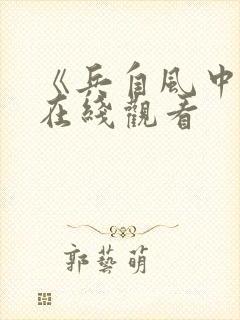 《兵自風中
在綫觀看
郭藝萌